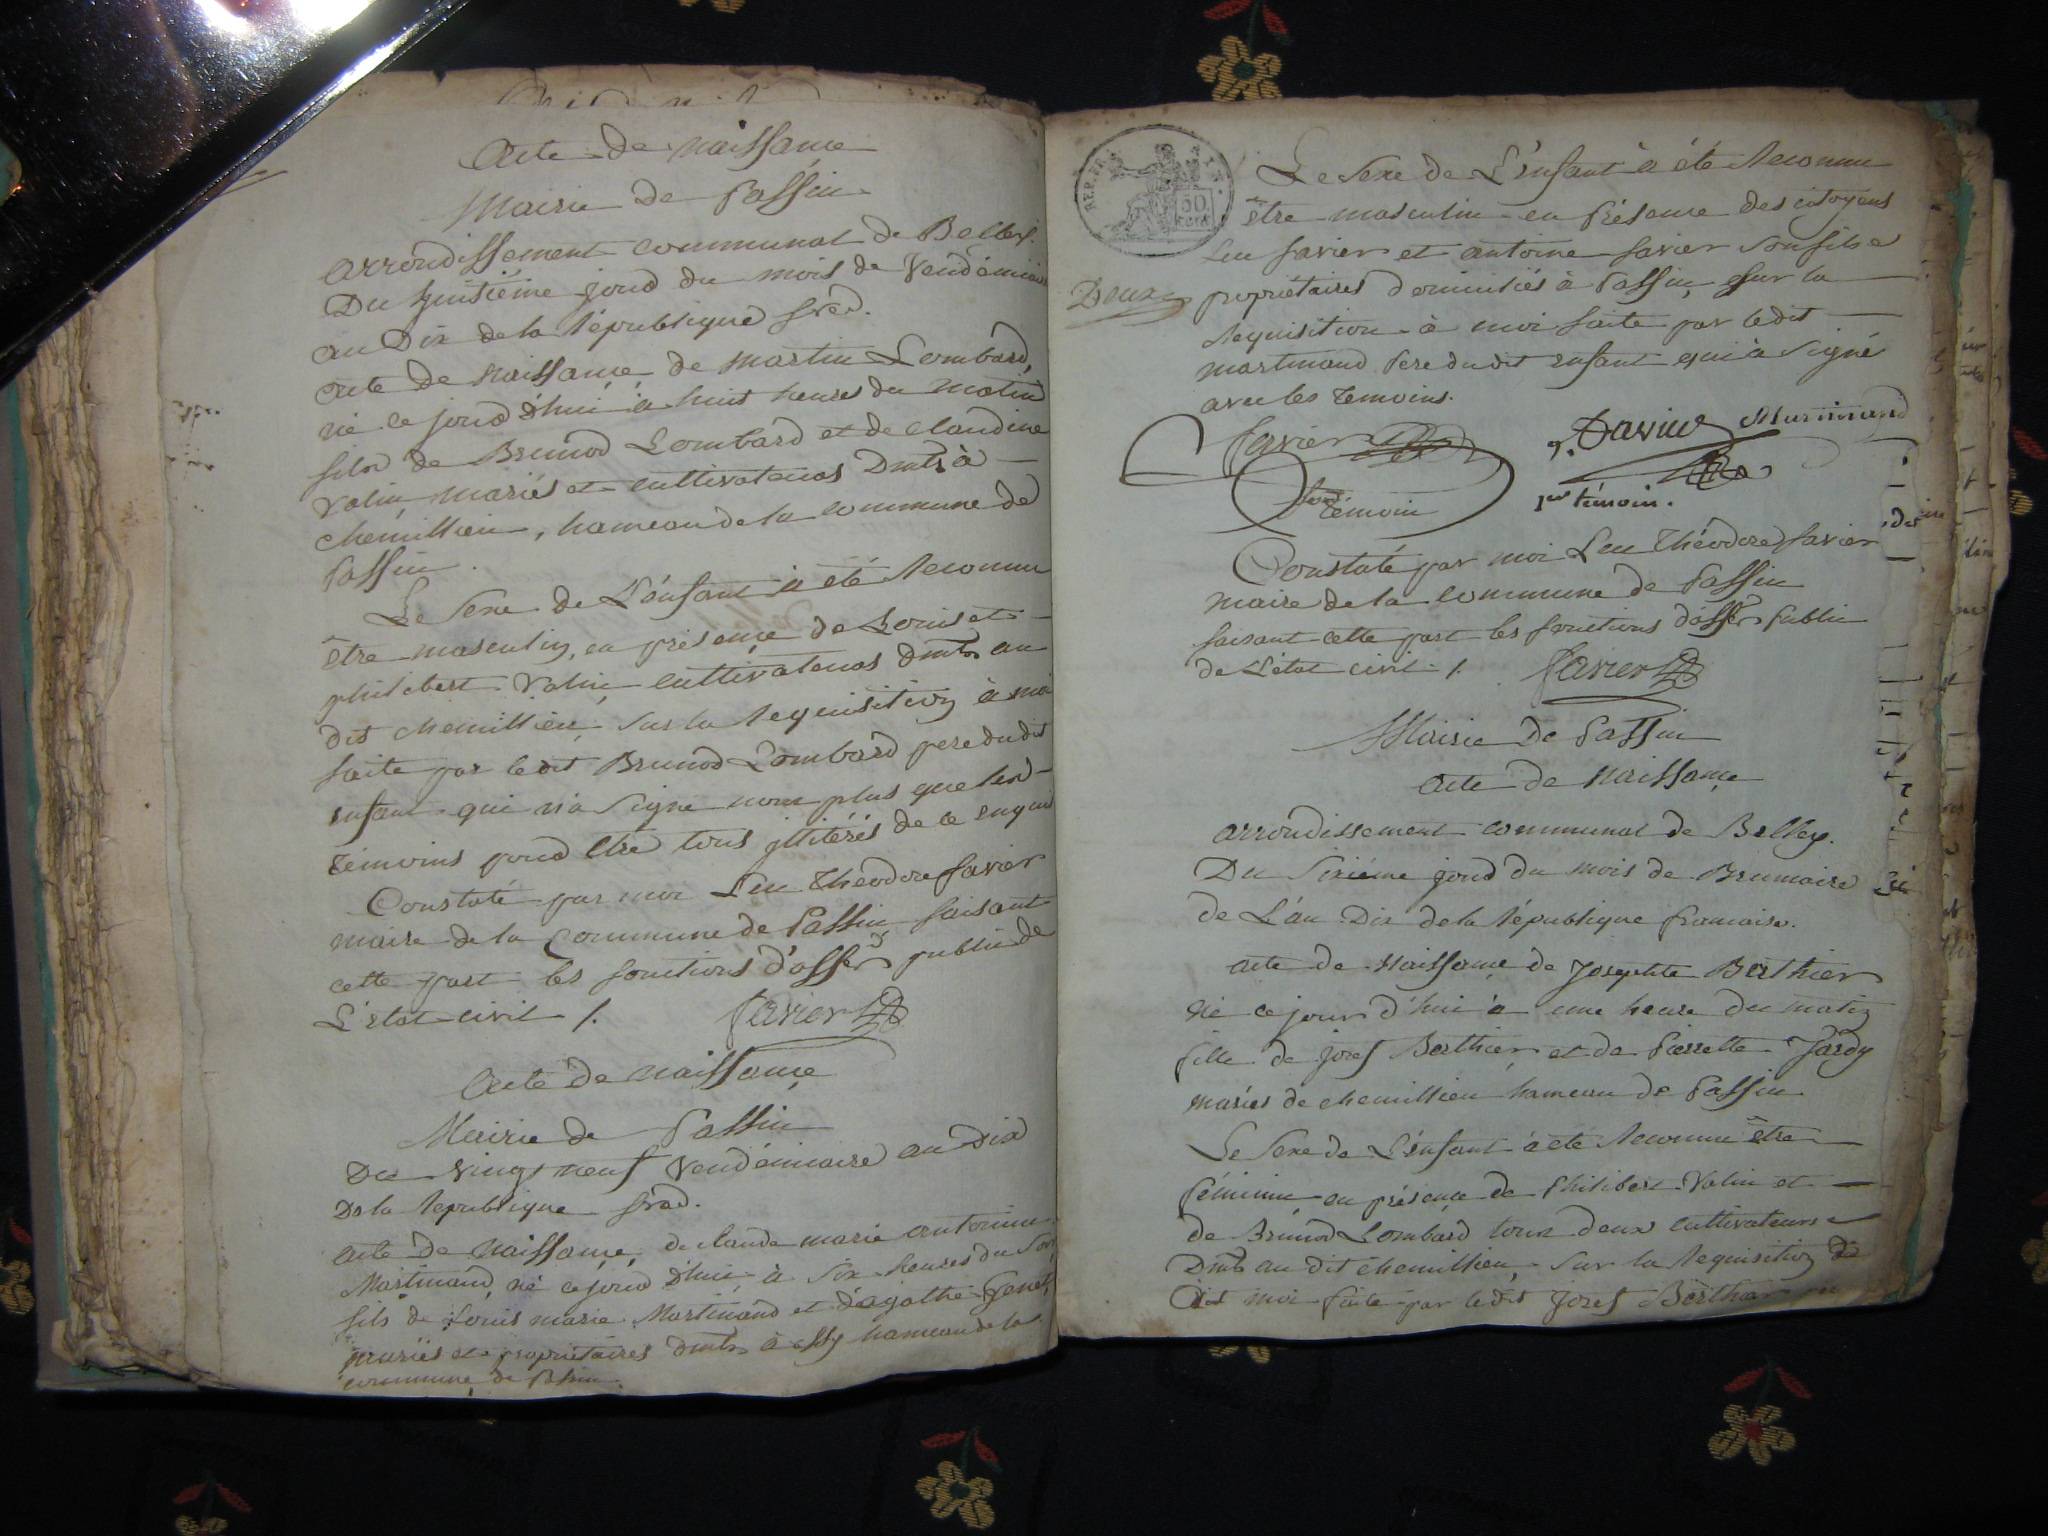 Acte de naissance
Mairie de Passin
arrondissement communal de Belley.
Du huitiéme jour du mois de Vendémiaire
an Dix de la République
acte de naissance de martin Lombard,
né ce jourd'hui à huit heures du matin
fils de Brunod Lombard et de claudine
Valin, mariés et cultivateurs Dmts à
chemillieu, hameau de la commune de
Passin.
Le Sexe de L'énfant à été Reconnu
être masculin, en présence de Louis et
philibert Valin cultivateurs dmts au
dit chemillieu, sur la Requisition à moi
faite par ledit Brunod Lombard pere du dit
enfant qui n'a Signé non plus que les
témoins pour être tous illitérés de ce enquis
Constaté par moi Leu Théodore favier
maire de la Commune de Passin faisant
cette part les fonctions d'offer public de
L'état civil /. favier
Acte de naissance
Mairie de Passin
Du vingt neuf Vendémiaire an Dix
De la République
acte de Naissance, de claude marie antoine
Martinand, né ce jourd'hui à Six heures du Soir
fils de Louis marie Martinand et d'agathe
mariés et propriétaires dmts à essy hameau de la
commune de Passin.
REP. FRA.
50
CENT.
Le Sexe de L'énfant à été Reconnu
être masculin en Présence des citoyens
Leu favier et antoine favier Son fils
Deux
propriétaires domiciliés à Passin, sur la
Requisition à moi faite par ledit
martinand Pere du dit enfant qui à Signé
avec les témoins.
favier favier Martinand
témoin 1er témoin.
Constaté par moi Leu Théodore favier
maire de la commune de Passin
faisant cette part les fonctions d'offer Public
de L'état civil /. favier
Mairie de Passin
Acte de Naissance
arrondissement communal de Belley.
Du Sixiéme jour du mois de Brumaire
de L'an Dix de la République francaise.
acte de Naissance de Josephte Berthier
né ce jour d'hui à une heure du matin
fille de josef Berthier et de Pierrette Jardy
mariés de chemillieu hameau de Passin
Le Sexe de L'énfant à été Reconnu être
féminin en présence de Philibert Valin et
de Brunod Lombard tous deux cultivateurs
Dmts au dit chemillieu, Sur la Requisition
moi faite par ledit Josef Berthier